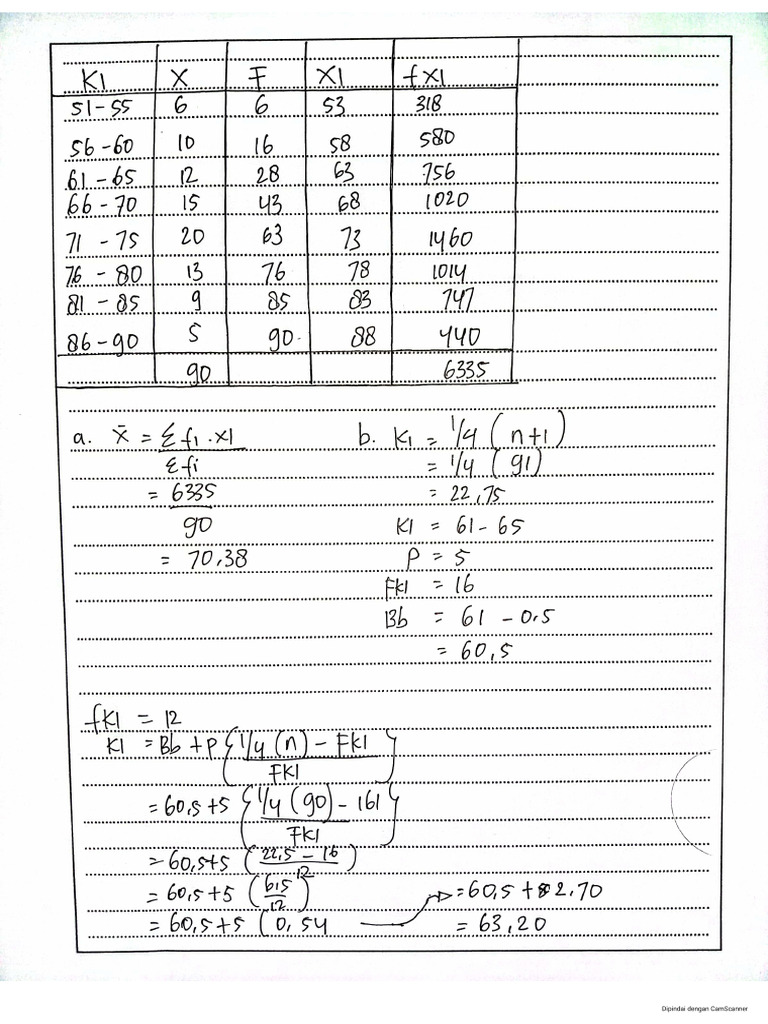 K1 X F X1 fX1
51-55 6 6 53 318
56-60 10 16 58 580
61-65 12 28 63 756
66-70 15 43 68 1020
71-75 20 63 73 1460
76-80 13 76 78 1014
81-85 9 85 83 747
86-90 5 90. 88 440
90 6335
a. x̄ = Σf1.x1
Σfi
= 6335
90
= 70,38
b. K1 = 1/4 (n+1)
= 1/4 (91)
= 22,75
K1 = 61-65
P = 5
FK1 = 16
Bb = 61 - 0,5
= 60,5
fK1 = 12
K1 = Bb + P {1/4 (n) - FK1}
FK1
= 60,5+5 {1/4 (90) - 161}
FK1
= 60,5+5 (22,5 - 16)
12
= 60,5+5 (6,5)
12
= 60,5+5 (0,54
= 60,5 + 2,70
= 63,20
Dipindai dengan CamScanner